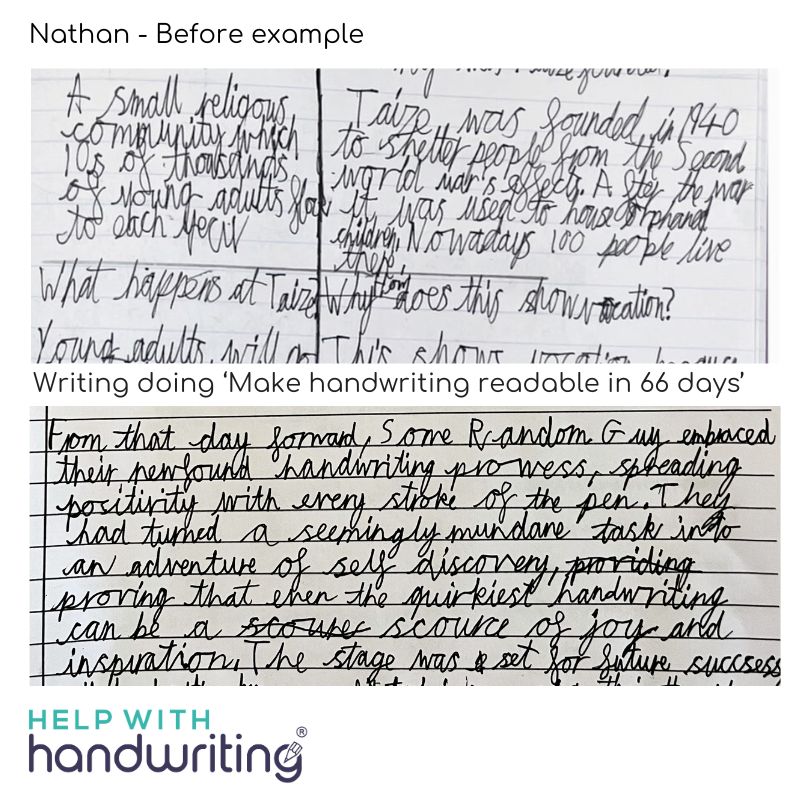 Nathan - Before example
A small religous
community which
10s of thousands
of young adults flock
to each year
Taize was founded in 1940
to shelter people from the Second
world war's effects. After the war
it was used to house orphand
children. Nowadays 100 people live
there.
What happens at Taize
Why does this show vocation?
Young adults will
This shows vocation because
Writing doing ‘Make handwriting readable in 66 days’
From that day forward, Some Random Guy embraced
their newfound handwriting prowess, spreading
positivity with every stroke of the pen. They
had turned a seemingly mundane task into
an adventure of self discovery, providing
proving that even the quirkiest handwriting
can be a scource of joy and
inspiration. The stage was set for future succsess
HELP WITH
handwriting®